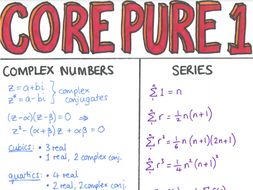 CORE PURE 1
COMPLEX NUMBERS
z = a + bi
z* = a - bi
} complex conjugates
(z-α)(z-β) = 0 ⇒
z² - (α+β)z + αβ = 0
cubics: • 3 real
• 1 real, 2 complex conj.
quartics: • 4 real
• 2 real, 2 complex conj.
SERIES
Σ 1 = n
Σ r = ½ n(n+1)
Σ r² = 1/6 n(n+1)(2n+1)
Σ r³ = ¼ n²(n+1)²